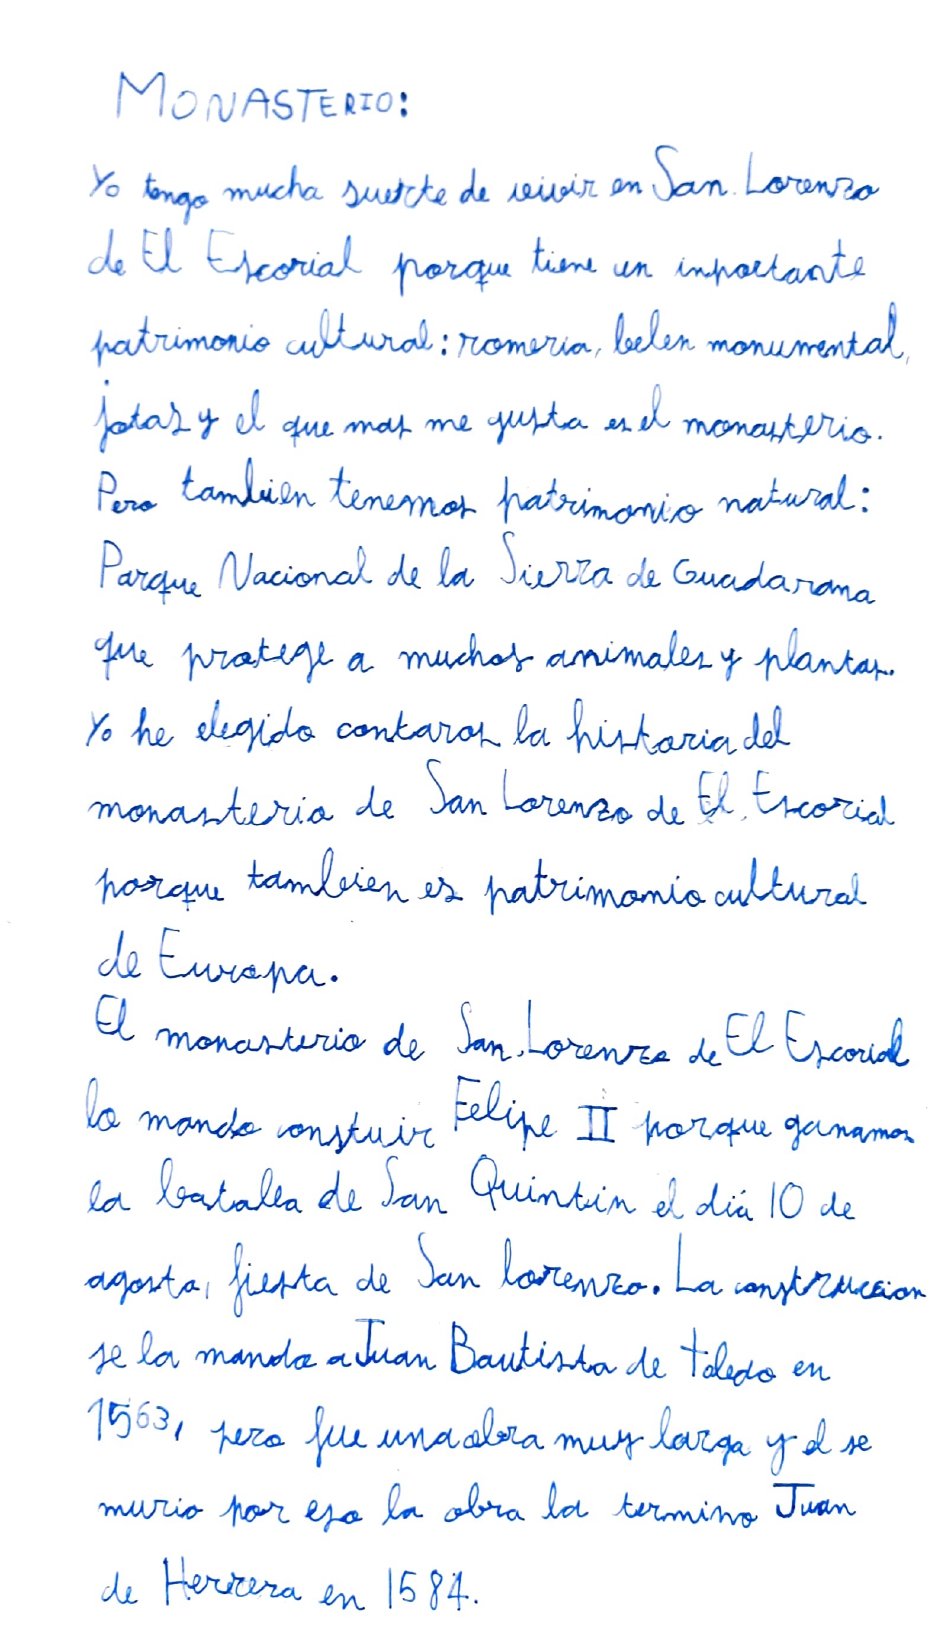 MONASTERIO:
Yo tengo mucha suerte de vivir en San Lorenzo
de El Escorial porque tiene un inportante
patrimonio cultural: romeria, belen monumental,
jotas y el que mas me gusta es el monasterio.
Pero tambien tenemos patrimonio natural:
Parque Nacional de la Sierra de Guadarama
que protege a muchos animales y plantas.
Yo he elegido contaros la historia del
monasterio de San Lorenzo de El Escorial
porque tambien es patrimonio cultural
de Europa.
El monasterio de San Lorenzo de El Escorial
lo mando constuir Felipe II porque ganamos
la batalla de San Quintin el diá 10 de
agosto, fiesta de San lorenzo. La construccion
se la mando a Juan Bautista de toledo en
1563, pero fue una obra muy larga y el se
murio por eso la obra la termino Juan
de Herrera en 1584.